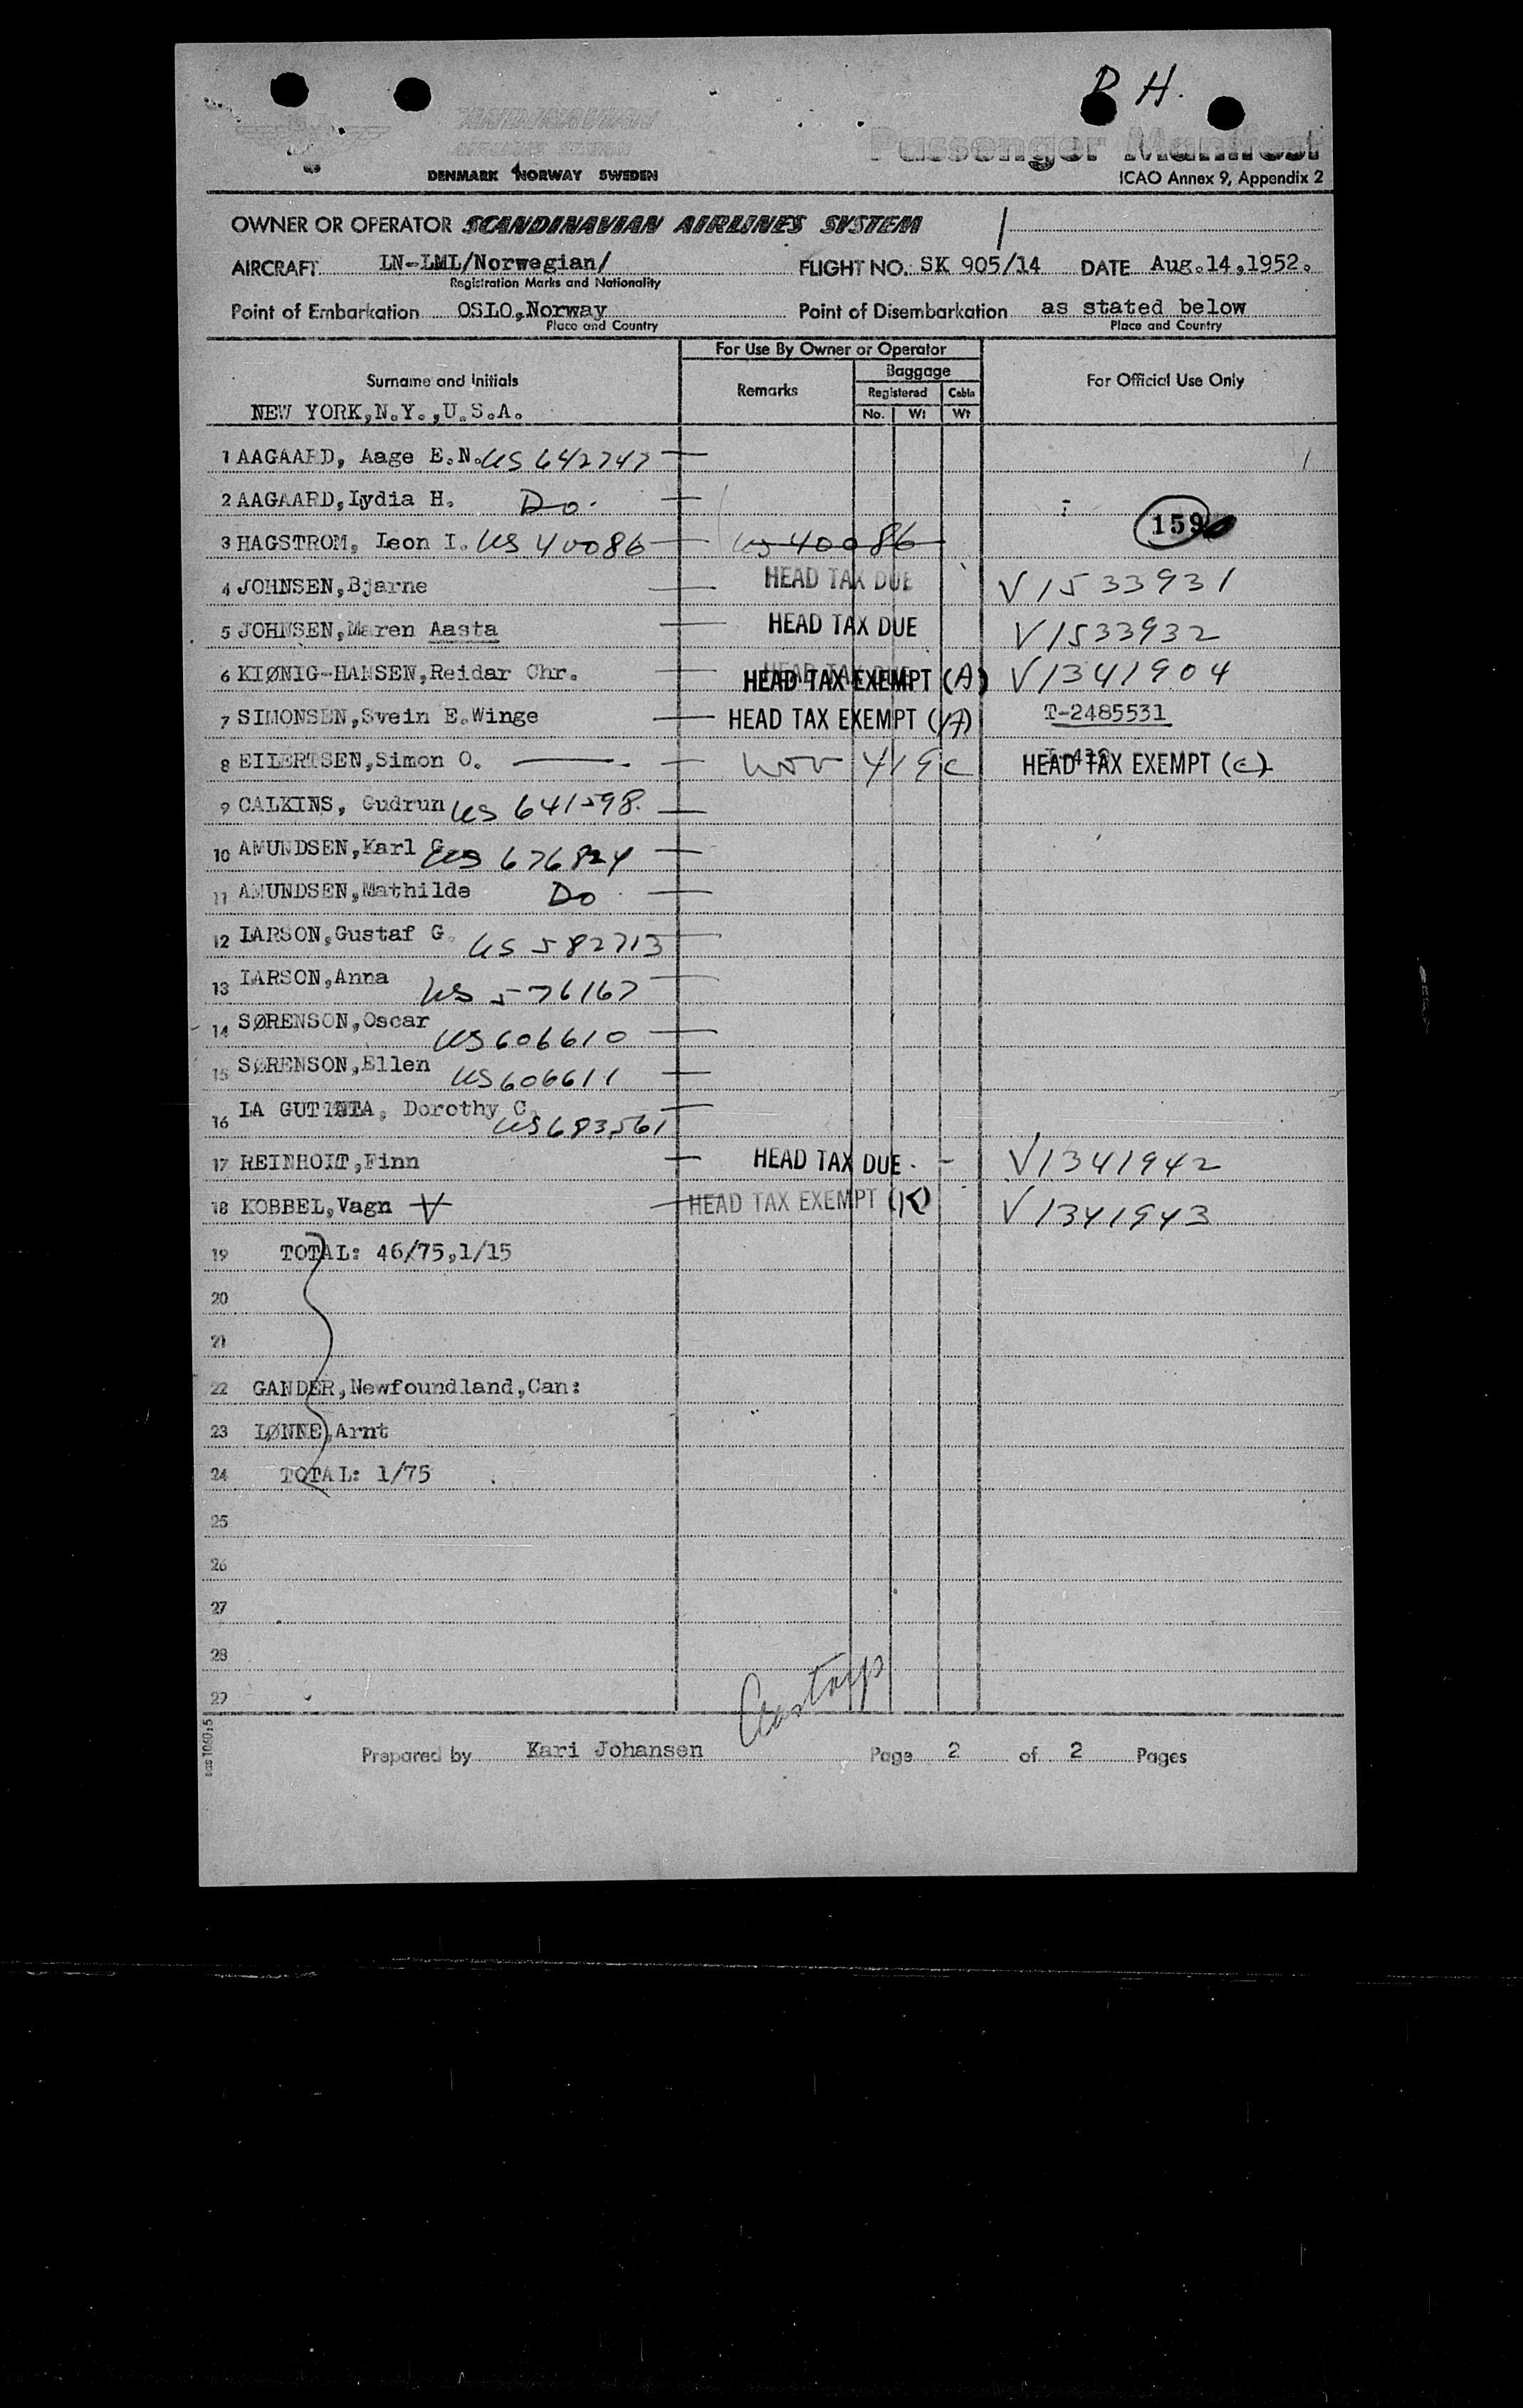 P H.
SCANDINAVIAN
AIRLINES SYSTEM
DENMARK NORWAY SWEDEN
Passenger Manifest
ICAO Annex 9, Appendix 2
OWNER OR OPERATOR SCANDINAVIAN AIRLINES SYSTEM
AIRCRAFT LN-LML/Norwegian/ FLIGHT NO. SK 905/14 DATE Aug.14,1952.
Registration Marks and Nationality
Point of Embarkation OSLO,Norway Point of Disembarkation as stated below
Place and Country Place and Country
For Use By Owner or Operator
Surname and Initials Remarks Baggage For Official Use Only
Registered Cabin
NEW YORK,N.Y.,U.S.A. No. Wt Wt
1 AAGAARD, Aage E.N. US 642747
2 AAGAARD,Lydia H. Do.
159
3 HAGSTROM, Leon I. US 40086 US 40086
4 JOHNSEN,Bjarne HEAD TAX DUE V1533931
5 JOHNSEN,Maren Aasta HEAD TAX DUE V1533932
6 KIØNIG-HANSEN,Reidar Chr. HEAD TAX EXEMPT (A) V1341904
7 SIMONSEN,Svein E.Winge HEAD TAX EXEMPT (A) T-2485531
8 EILERTSEN,Simon O. Nov 419c HEAD TAX EXEMPT (c)
9 CALKINS, Gudrun US 641598
10 AMUNDSEN,Karl G. US 676824
11 AMUNDSEN,Mathilde Do
12 LARSON,Gustaf G. US 582713
13 LARSON,Anna US 576167
14 SØRENSON,Oscar US606610
15 SØRENSON,Ellen US606611
16 LA Dorothy C. US683561
17 REINHOLT,Finn HEAD TAX DUE V1341942
18 KOBBEL,Vagn V HEAD TAX EXEMPT V1341943
19 TOTAL: 46/75,1/15
20
21
22 GANDER,Newfoundland,Can:
23 LØNNE,Arnt
24 TOTAL: 1/75
25
26
27
28
29
Prepared by Kari Johansen Page 2 of 2 Pages